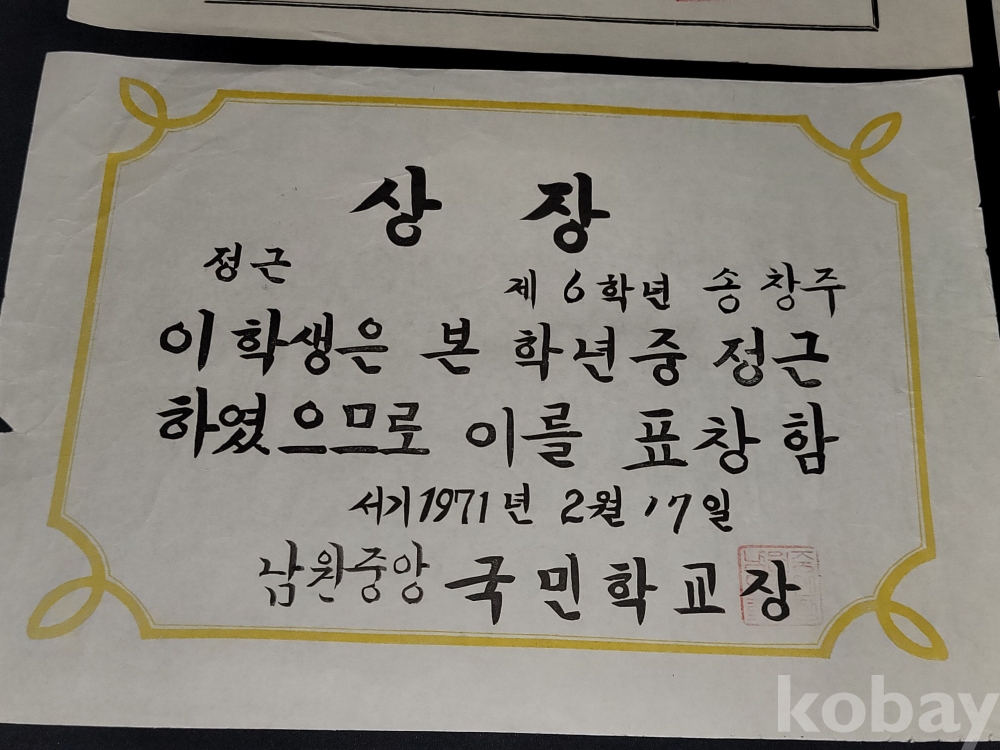 상 장
정근
제 6 학년 송창주
이 학생은 본 학년중 정근
하였으므로 이를 표창함
서기 1971년 2월 17일
남원중앙 국민학교장
kobay